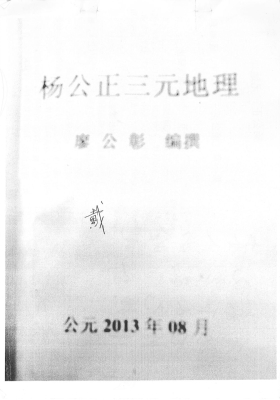 杨公正三元地理
廖公彰 编撰
公元 2013 年 08 月